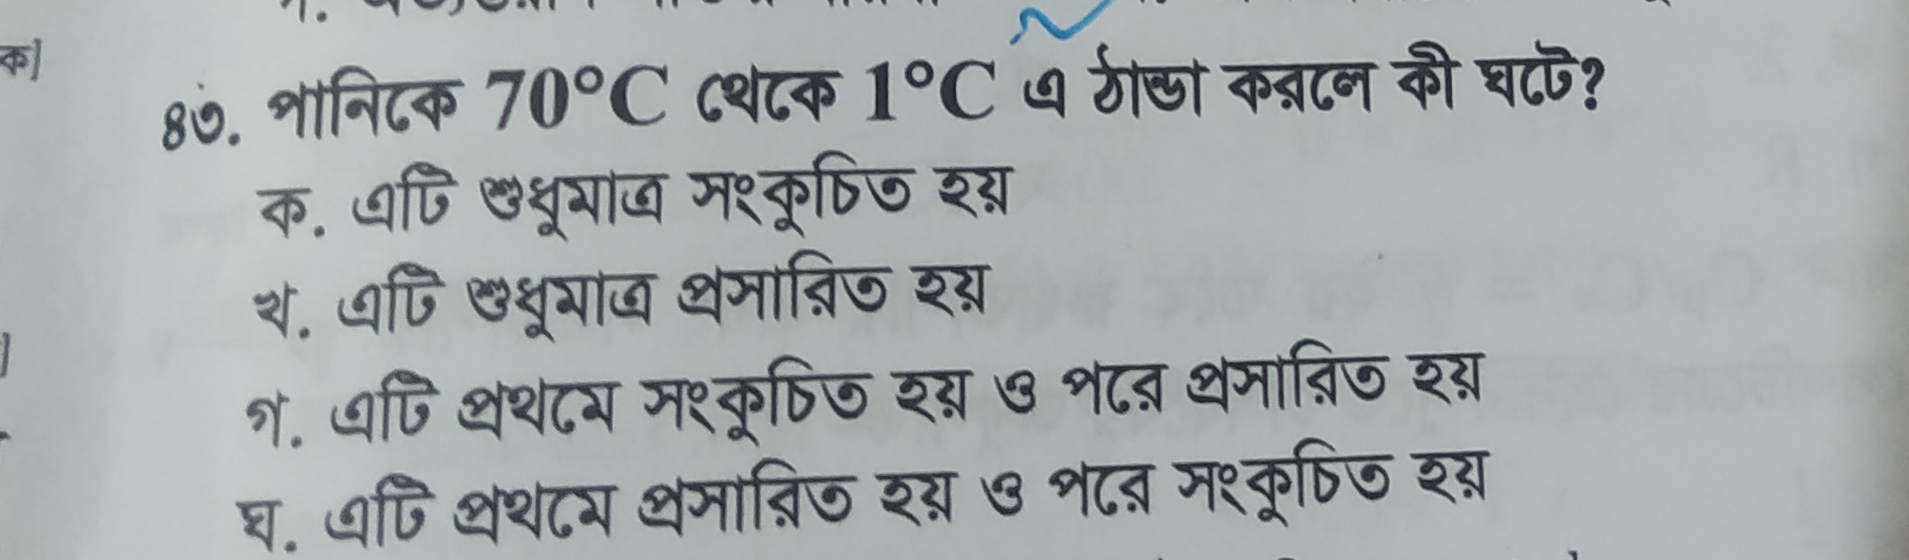 ক]
৪৩. পানিকে 70°C থেকে 1°C এ ঠান্ডা করলে কী ঘটে?
ক. এটি শুধুমাত্র সংকুচিত হয়
খ. এটি শুধুমাত্র প্রসারিত হয়
গ. এটি প্রথমে সংকুচিত হয় ও পরে প্রসারিত হয়
ঘ. এটি প্রথমে প্রসারিত হয় ও পরে সংকুচিত হয়